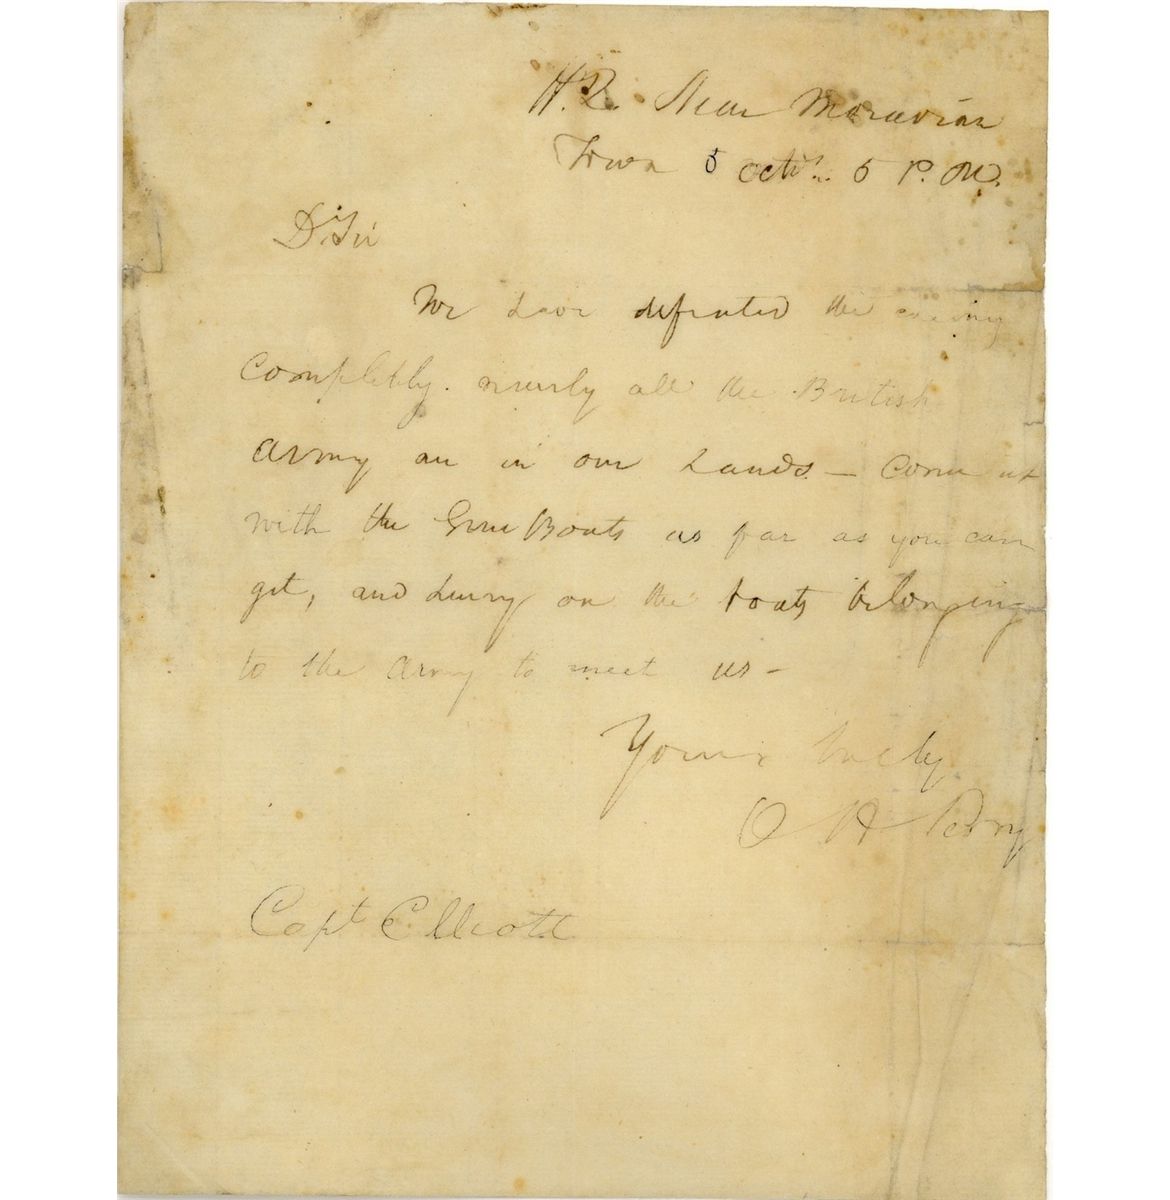 H.Q. Near Moravian
Town 5 Octr. 5 P.M.
Dr Sir
We have defeated the enemy
completely. nearly all the British
army are in our hands — Come up
with the Gun Boats as far as you can
get, and hurry on the boats belonging
to the army to meet us —
Yours truly
O H Perry
Capt Elliott